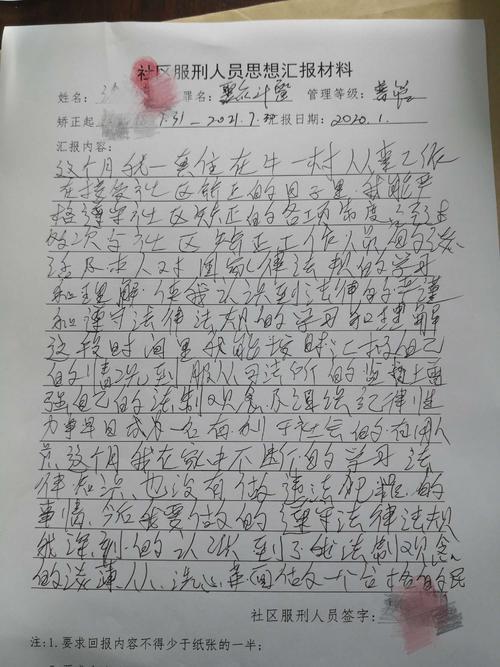 社区服刑人员思想汇报材料
姓名: 罪名: 聚众斗殴 管理等级: 普管
矫正起 7.31—2021.7.30 汇报日期: 2020.1.
汇报内容:
这个月我一直住在牛一村从事工作
在接受社区矫正的日子里.我能严
格遵守社区矫正的各项制度.通过
数次与社区矫正工作人员的谈
话及本人对国家律法规的学习
和理解.使我认识到法律的严肃
和遵守法律法规的学习和理解
这段时间里我能按时汇报自己
的情况到服从司法所的监督上面
强自己的法制观念及组织纪律性
力争早日成为一名有利于社会的有用人
员.这个月我在家中不断的学习法
律知识.也没有做违法犯罪的
事情.今后我要做的遵守法律法规
我深刻的认识到了我法制观念
的淡薄.从.洗心革面做一个合格的民
社区服刑人员签字:
注: 1.要求回报内容不得少于纸张的一半;